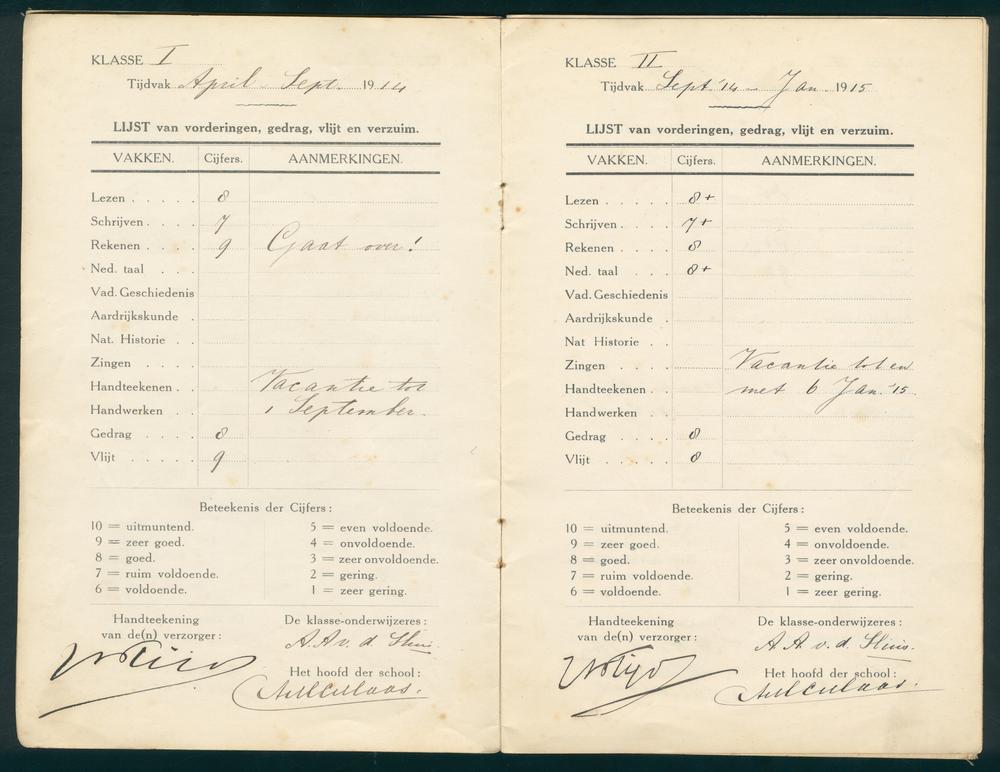 KLASSE I
Tijdvak April - Sept. 1914
LIJST van vorderingen, gedrag, vlijt en verzuim.
VAKKEN. Cijfers. AANMERKINGEN.
Lezen . . . . . 8
Schrijven . . . . 7
Rekenen . . . . 9 Gaat over!
Ned. taal . . .
Vad. Geschiedenis
Aardrijkskunde .
Nat. Historie . .
Zingen . . . .
Handteekenen . . Vacantie tot
Handwerken . . 1 September.
Gedrag . . . . 8
Vlijt . . . . . 9
Beteekenis der Cijfers:
10 = uitmuntend. 5 = even voldoende.
9 = zeer goed. 4 = onvoldoende.
8 = goed. 3 = zeer onvoldoende.
7 = ruim voldoende. 2 = gering.
6 = voldoende. 1 = zeer gering.
Handteekening De klasse-onderwijzeres:
van de(n) verzorger: A. A. v. d. Sluis.
Het hoofd der school:
KLASSE II
Tijdvak Sept. '14 - Jan. 1915
LIJST van vorderingen, gedrag, vlijt en verzuim.
VAKKEN. Cijfers. AANMERKINGEN.
Lezen . . . . . 8+
Schrijven . . . . 7+
Rekenen . . . . 8
Ned. taal . . . 8+
Vad. Geschiedenis
Aardrijkskunde .
Nat Historie . .
Zingen . . . . Vacantie tot en
Handteekenen . . met 6 Jan. '15.
Handwerken . .
Gedrag . . . . 8
Vlijt . . . . . 8
Beteekenis der Cijfers:
10 = uitmuntend. 5 = even voldoende.
9 = zeer goed. 4 = onvoldoende.
8 = goed. 3 = zeer onvoldoende.
7 = ruim voldoende. 2 = gering.
6 = voldoende. 1 = zeer gering.
Handteekening De klasse-onderwijzeres:
van de(n) verzorger: A. A. v. d. Sluis.
Het hoofd der school: